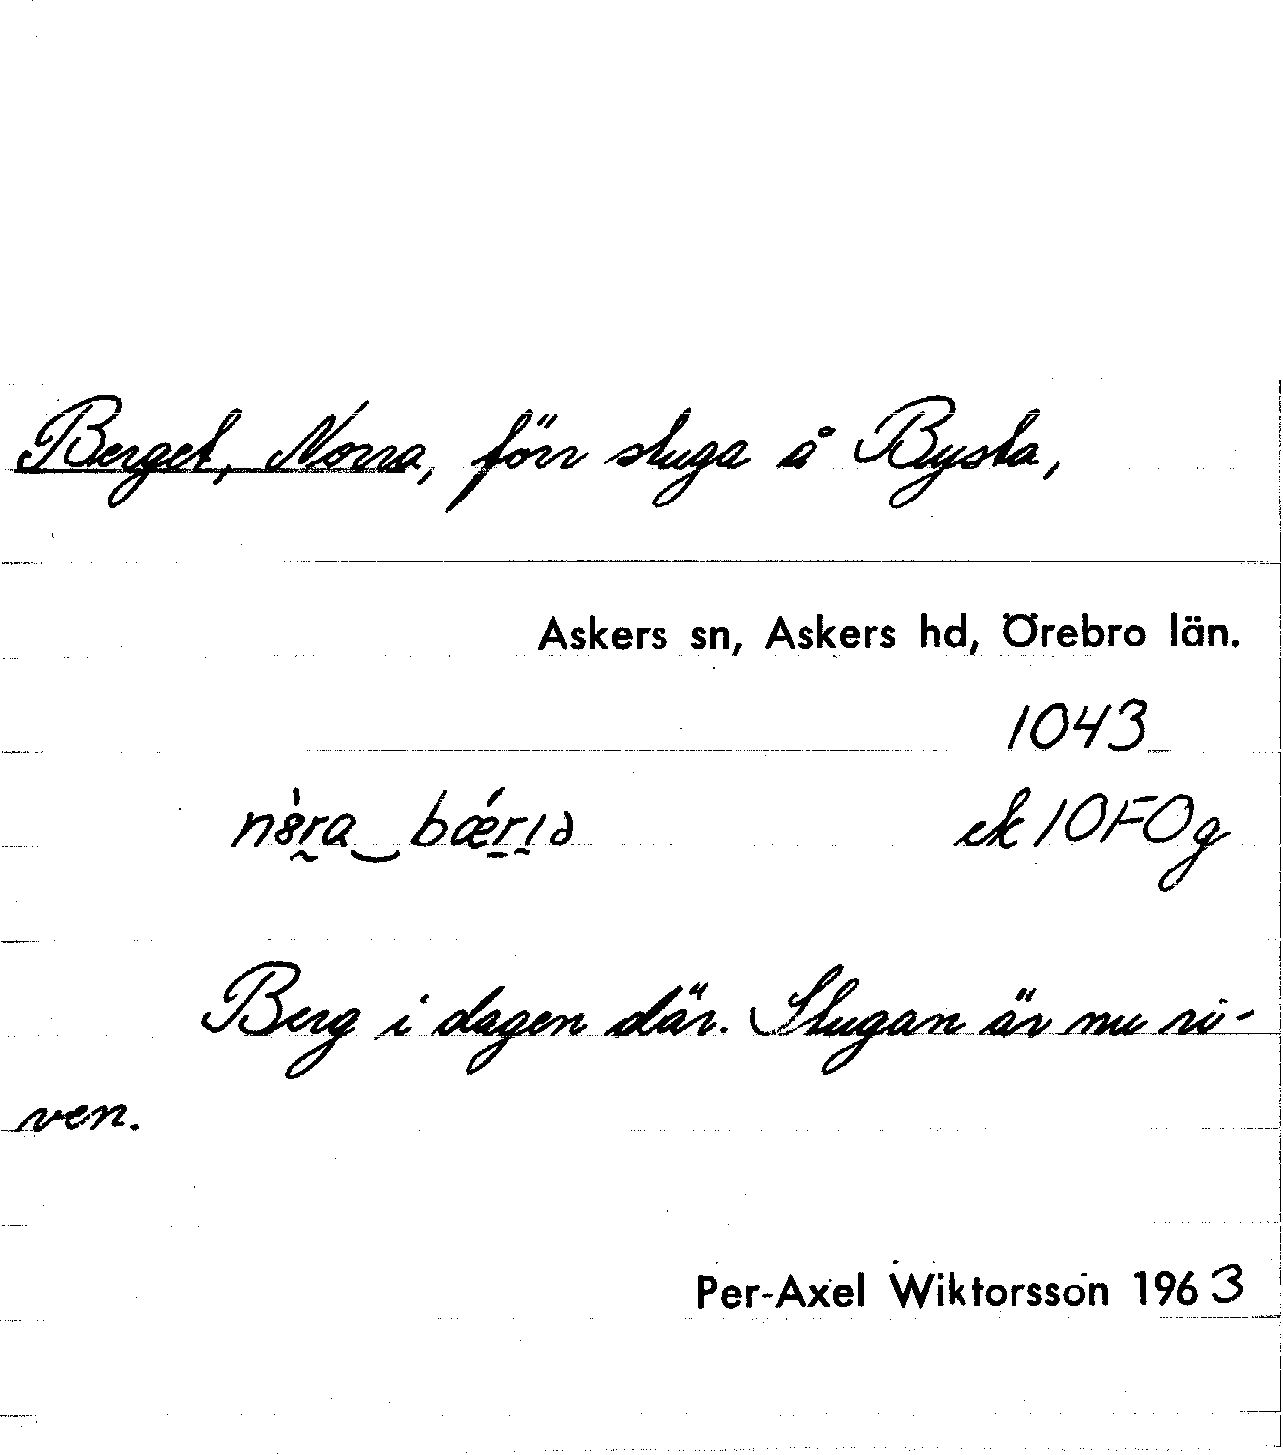 Berget, Norra, förr stuga å Bysta,
Askers sn, Askers hd, Örebro län.
1043
ek 10F0g
Berg i dagen där. Stugan är nu ri-
ven.
Per-Axel Wiktorsson 1963